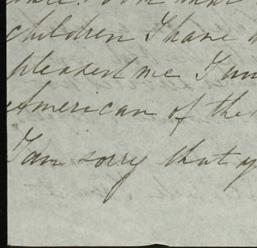 children I have
pleased me I am
American of the
I am sorry that y